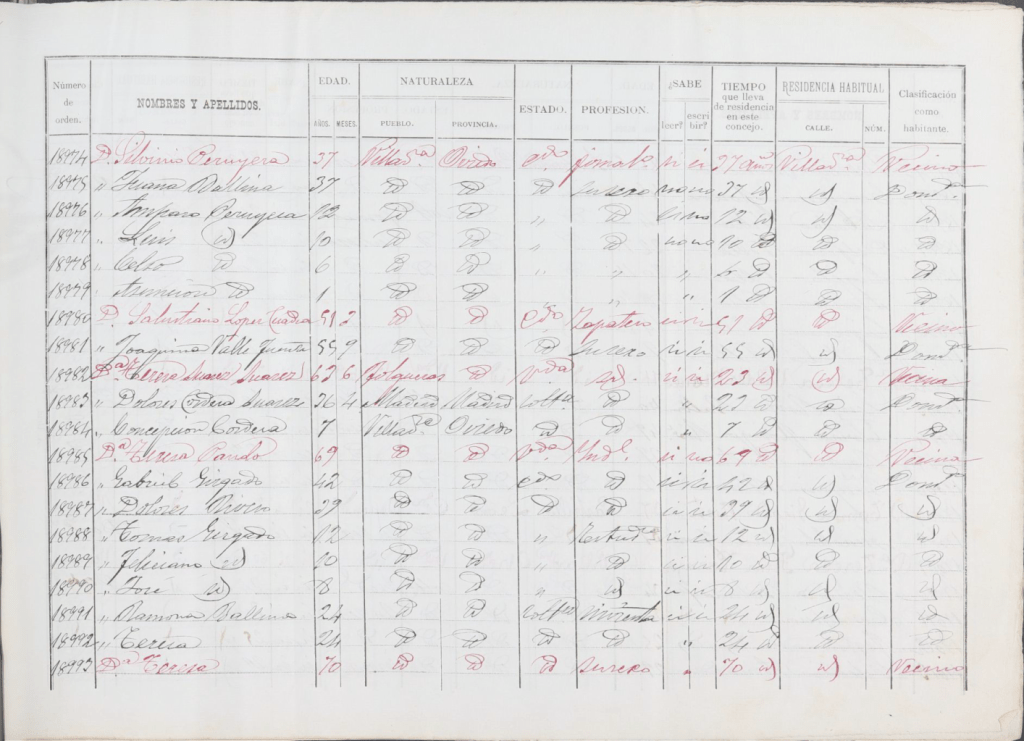 Número de orden. NOMBRES Y APELLIDOS. EDAD. AÑOS. MESES. NATURALEZA PUEBLO. PROVINCIA. ESTADO. PROFESION. SABE leer? escribir? TIEMPO que lleva de residencia en este concejo. RESIDENCIA HABITUAL CALLE. NÚM. Clasificación como habitante.
18974 D. Silvinio Peruyera 37 Villadª Oviedo cdo jornalº si si 37 años Villadª Vecino
18975 " Juana Ballina 37 id id id no no 37 id id Domª
18976 " Amparo Peruyera 12 id id " id 12 id id id
18977 " Luis id 10 id id " id no no 10 id id id
18978 " Celso id 6 id id " " " id id id
18979 " Asencion id 1 id id " " 1 id id id
18980 D. Salustiano Lopez Cuadra 51 2 id id cdo Zapatero si si 51 id id Vecino
18981 " Joaquina Valle Fuente 55 9 id id id si si 55 id id Domª
18982 Dª Teresa Suarez Suarez 63 6 Folgueras id vda id si si 23 id id Vecina
18983 " Dolores Cordera Suarez 36 4 Madrid Madrid soltª id " 23 id id Domª
18984 " Concepcion Cordera 7 Villadª Oviedo id id " 7 id id id
18985 Dª Teresa Pando 69 id id vda Indl si no 69 id id Vecina
18986 " Gabriel Girgado 42 id id cdo id si si 42 id id Domº
18987 " Dolores Rivero 39 id id id id si si 39 id id id
18988 " Tomas Girgado 12 id id " Estude si si 12 id id id
18989 " Feliciano id 10 id id " id si si 10 id id id
18990 " José id 8 id id " id si si 8 id id id
18991 " Ramona Ballina 24 id id soltra sirvienta si si 24 id id id
18992 " Teresa 24 id id id id " 24 id id id
18993 Dª Teresa 70 id id id " 70 id id Vecina